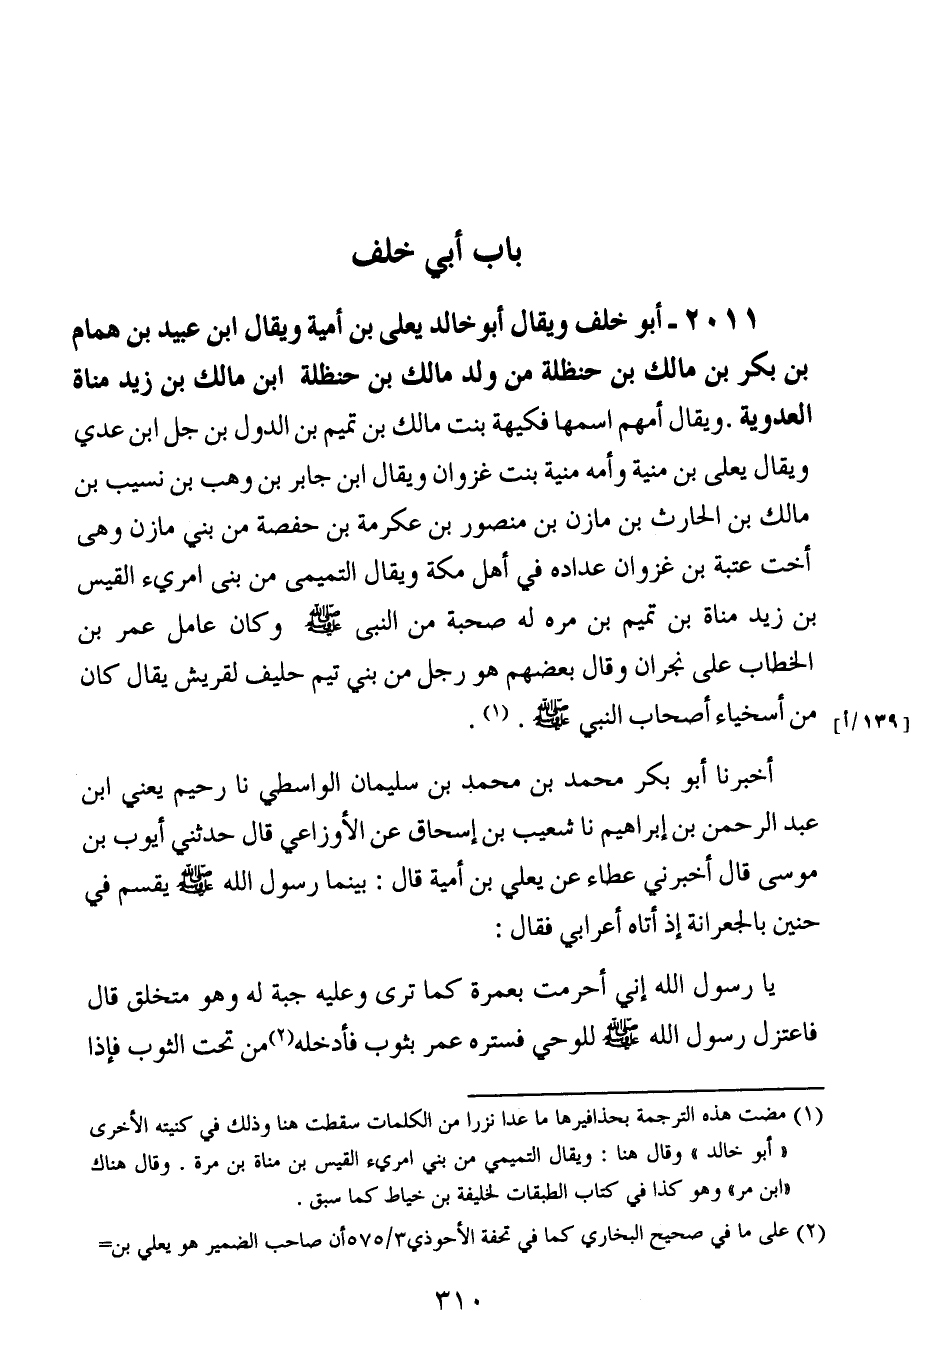 باب أبي خلف
٢٠١١ - أبو خلف ويقال أبو خالد يعلى بن أمية ويقال ابن عبيد بن همام
بن بكر بن مالك بن حنظلة من ولد مالك بن حنظلة ابن مالك بن زيد مناة
العدوية . ويقال أمهم اسمها فكيهة بنت مالك بن تميم بن الدول بن جل ابن عدي
ويقال يعلى بن منية وأمه منية بنت غزوان ويقال ابن جابر بن وهب بن نسيب بن
مالك بن الحارث بن مازن بن منصور بن عكرمة بن حفصة من بني مازن وهى
أخت عتبة بن غزوان عداده في أهل مكة ويقال التميمى من بنى امريء القيس
بن زيد مناة بن تميم بن مره له صحبة من النبى ﷺ وكان عامل عمر بن
الخطاب على نجران وقال بعضهم هو رجل من بني تيم حليف لقريش يقال كان
من أسخياء أصحاب النبي ﷺ . (١) .
[١٣٩/أ]
أخبرنا أبو بكر محمد بن محمد بن سليمان الواسطي نا رحيم يعني ابن
عبد الرحمن بن إبراهيم نا شعيب بن إسحاق عن الأوزاعي قال حدثني أيوب بن
موسى قال أخبرني عطاء عن يعلي بن أمية قال : بينما رسول الله ﷺ يقسم في
حنين بالجعرانة إذ أتاه أعرابي فقال :
يا رسول الله إني أحرمت بعمرة كما ترى وعليه جبة له وهو متخلق قال
فاعتزل رسول الله ﷺ للوحي فستره عمر بثوب فأدخله(٢) من تحت الثوب فإذا
(١) مضت هذه الترجمة بحذافيرها ما عدا نزرا من الكلمات سقطت هنا وذلك في كنيته الأخرى
« أبو خالد » وقال هنا : ويقال التميمي من بني امريء القيس بن مناة بن مرة . وقال هناك
«ابن مر» وهو كذا في كتاب الطبقات لخليفة بن خياط كما سبق .
(٢) على ما في صحيح البخاري كما في تحفة الأحوذي ٥٧٥/٣ أن صاحب الضمير هو يعلي بن=
٣١٠